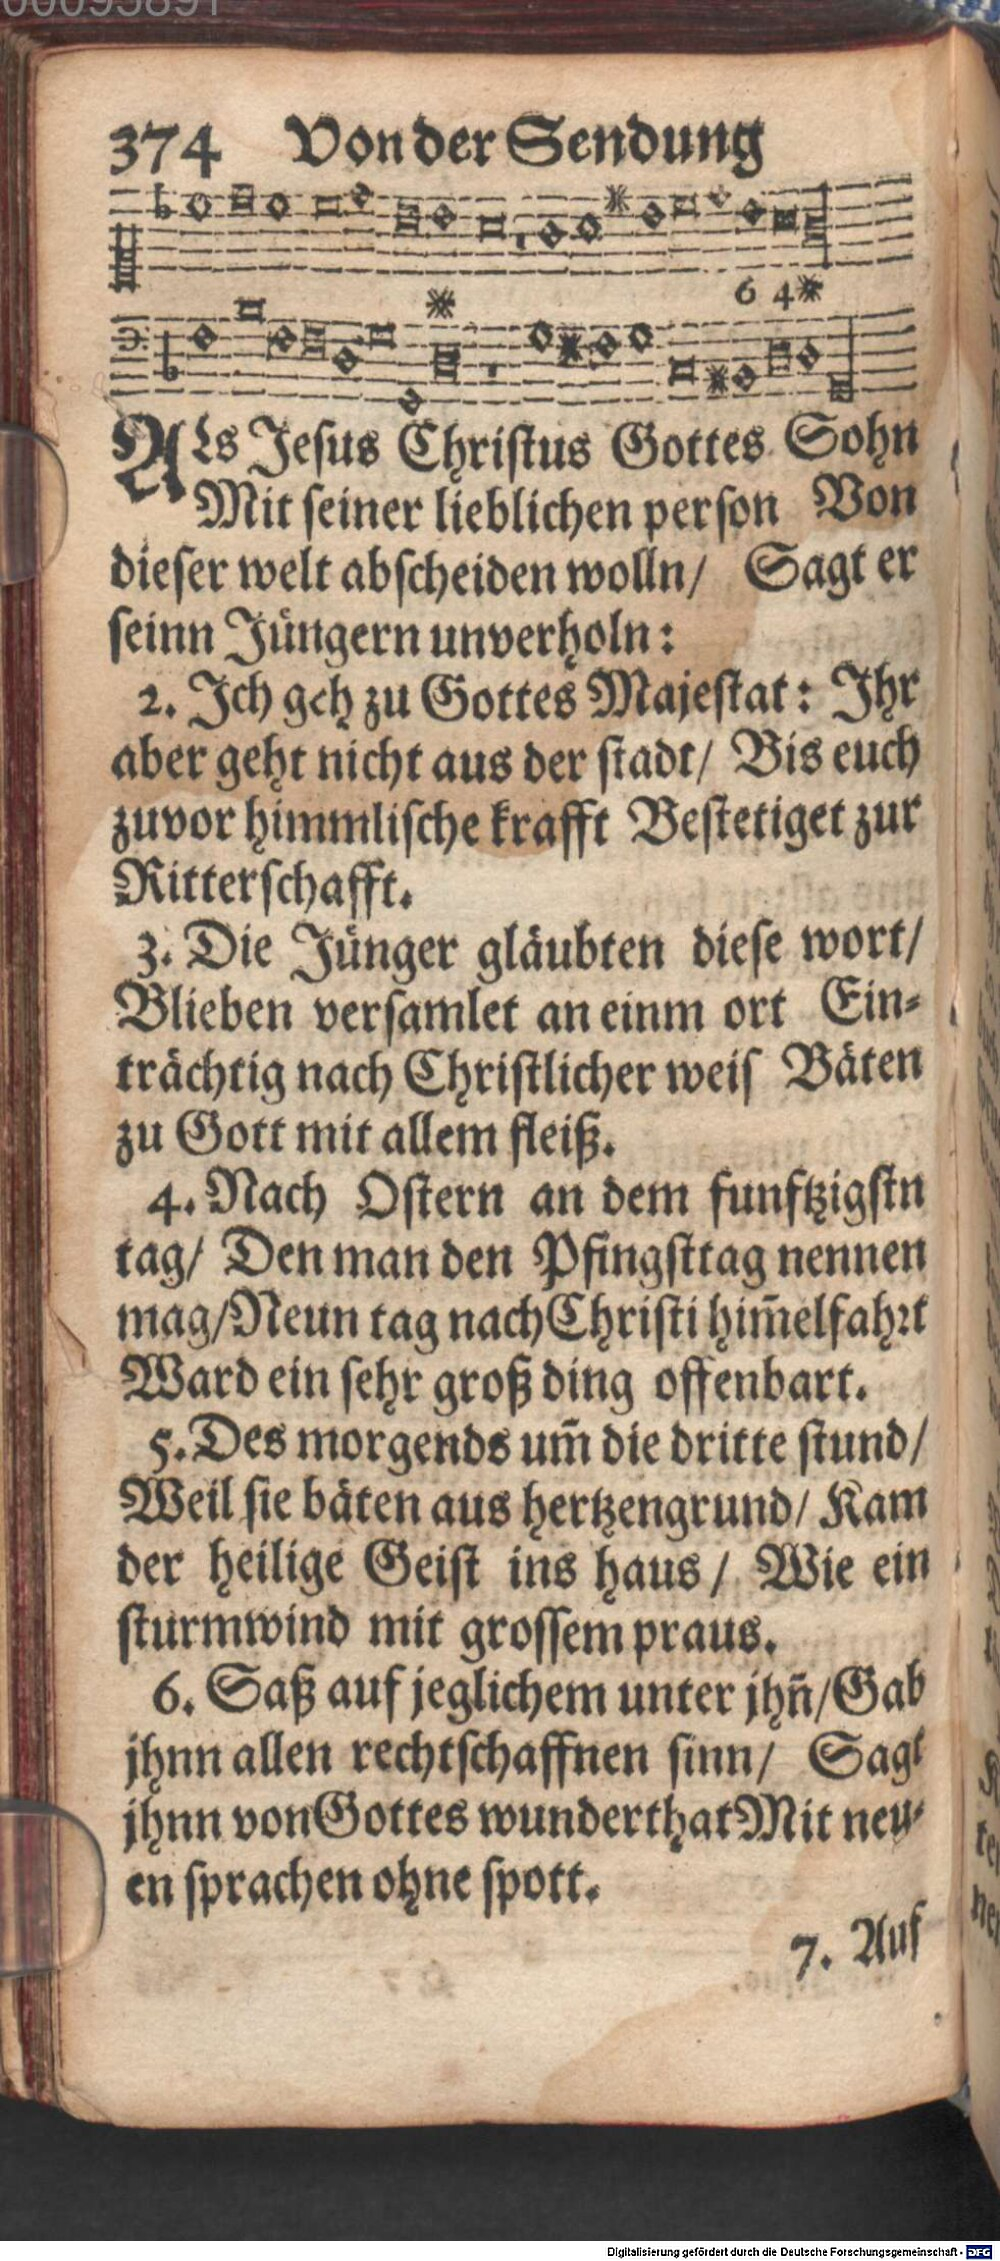 00095891
374 Von der Sendung
6 4
ALs Jeſus Chriſtus Gottes Sohn
Mit ſeiner lieblichen perſon Von
dieſer welt abſcheiden wolln/ Sagt er
ſeinn Jüngern unverholn:
2. Jch geh zu Gottes Majeſtat: Jhr
aber geht nicht aus der ſtadt/ Bis euch
zuvor himmliſche krafft Beſtetiget zur
Ritterſchafft.
3. Die Jünger gläubten dieſe wort/
Blieben verſamlet an einm ort Ein⸗
trächtig nach Chriſtlicher weiſ Bäten
zu Gott mit allem fleiß.
4. Nach Oſtern an dem funftzigſtn
tag/ Den man den Pfingſttag nennen
mag/Neun tag nach Chriſti him̄elfahꝛt
Ward ein ſehr groß ding offenbart.
5. Des morgends um̄ die dritte ſtund/
Weil ſie bäten aus hertzengrund/ Kam
der heilige Geiſt ins haus/ Wie ein
ſturmwind mit groſſem praus.
6. Saß auf jeglichem unter jhn̄/Gab
jhnn allen rechtſchaffnen ſinn/ Sagt
jhnn von Gottes wunderthat Mit neu⸗
en ſprachen ohne ſpott.
7. Auf
Digitalisierung gefördert durch die Deutsche Forschungsgemeinschaft - DFG